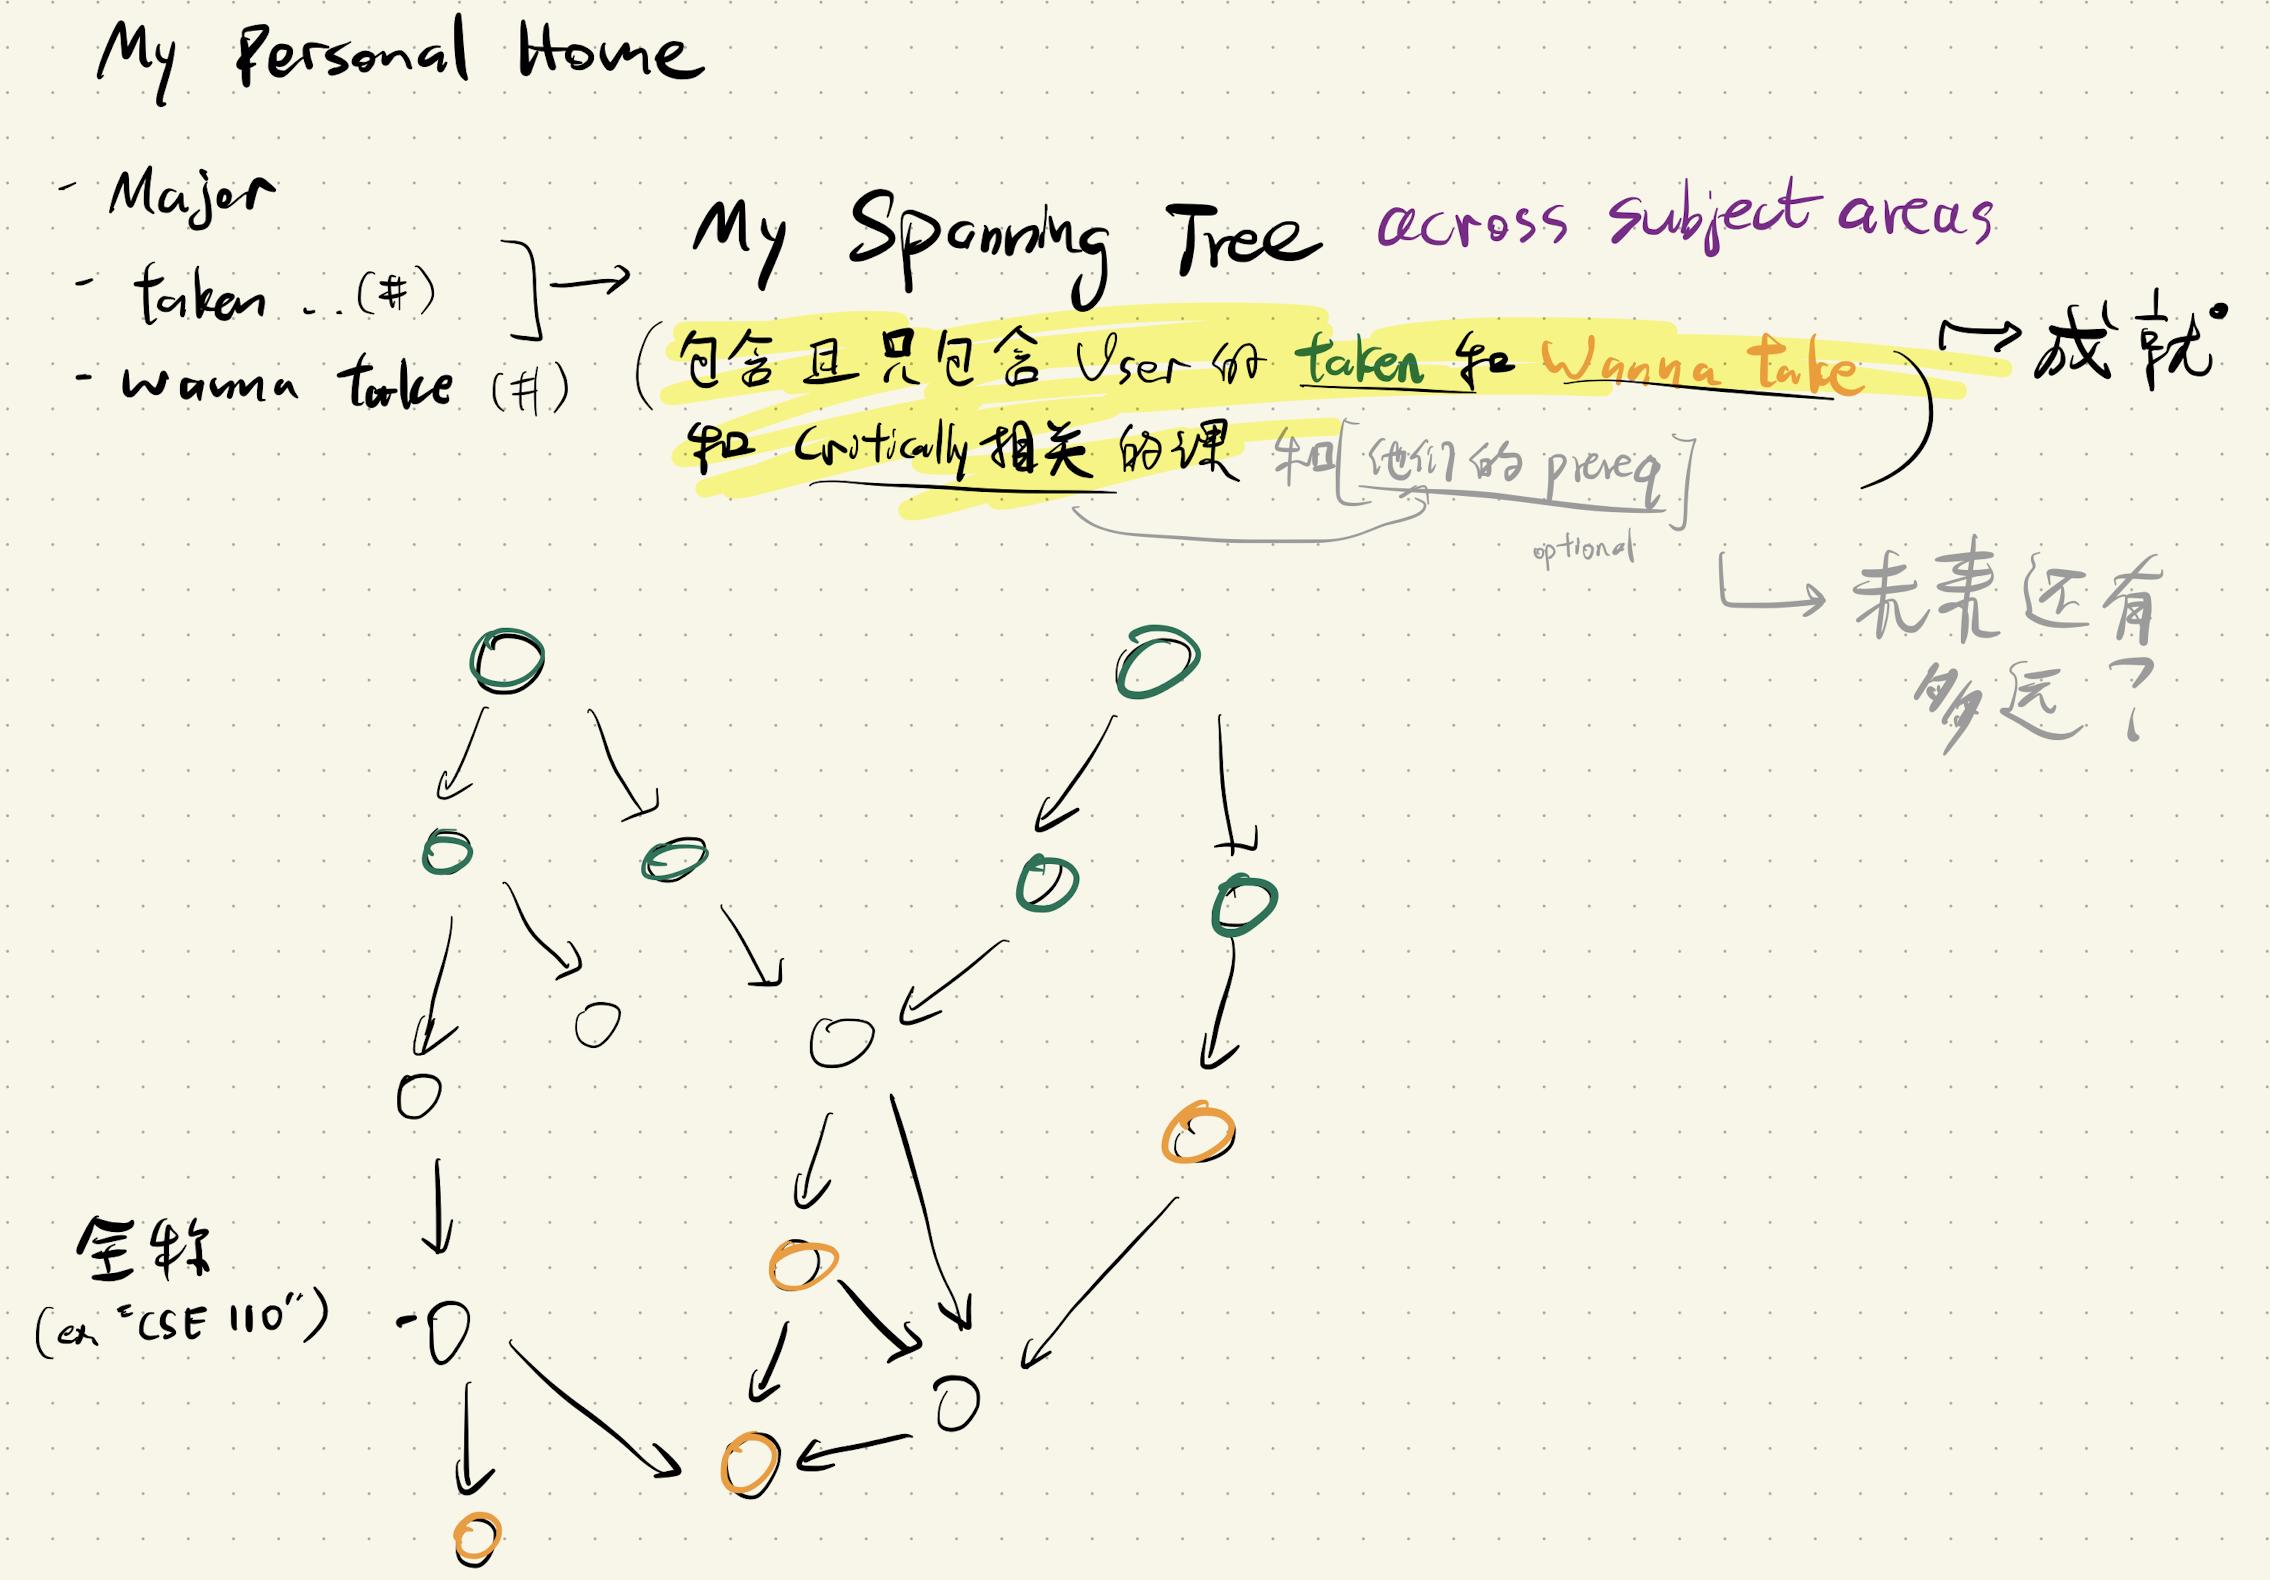 My Personal Home
- Major
- taken ... (#)
- wanna take (#)
My Spanning Tree across subject areas
(包含且只包含 User 的 taken 和 Wanna take
和 Critically 相关 的课 和[他们的 prereq])
optional
成就
还有
多远?
全称
(ex "CSE 110")